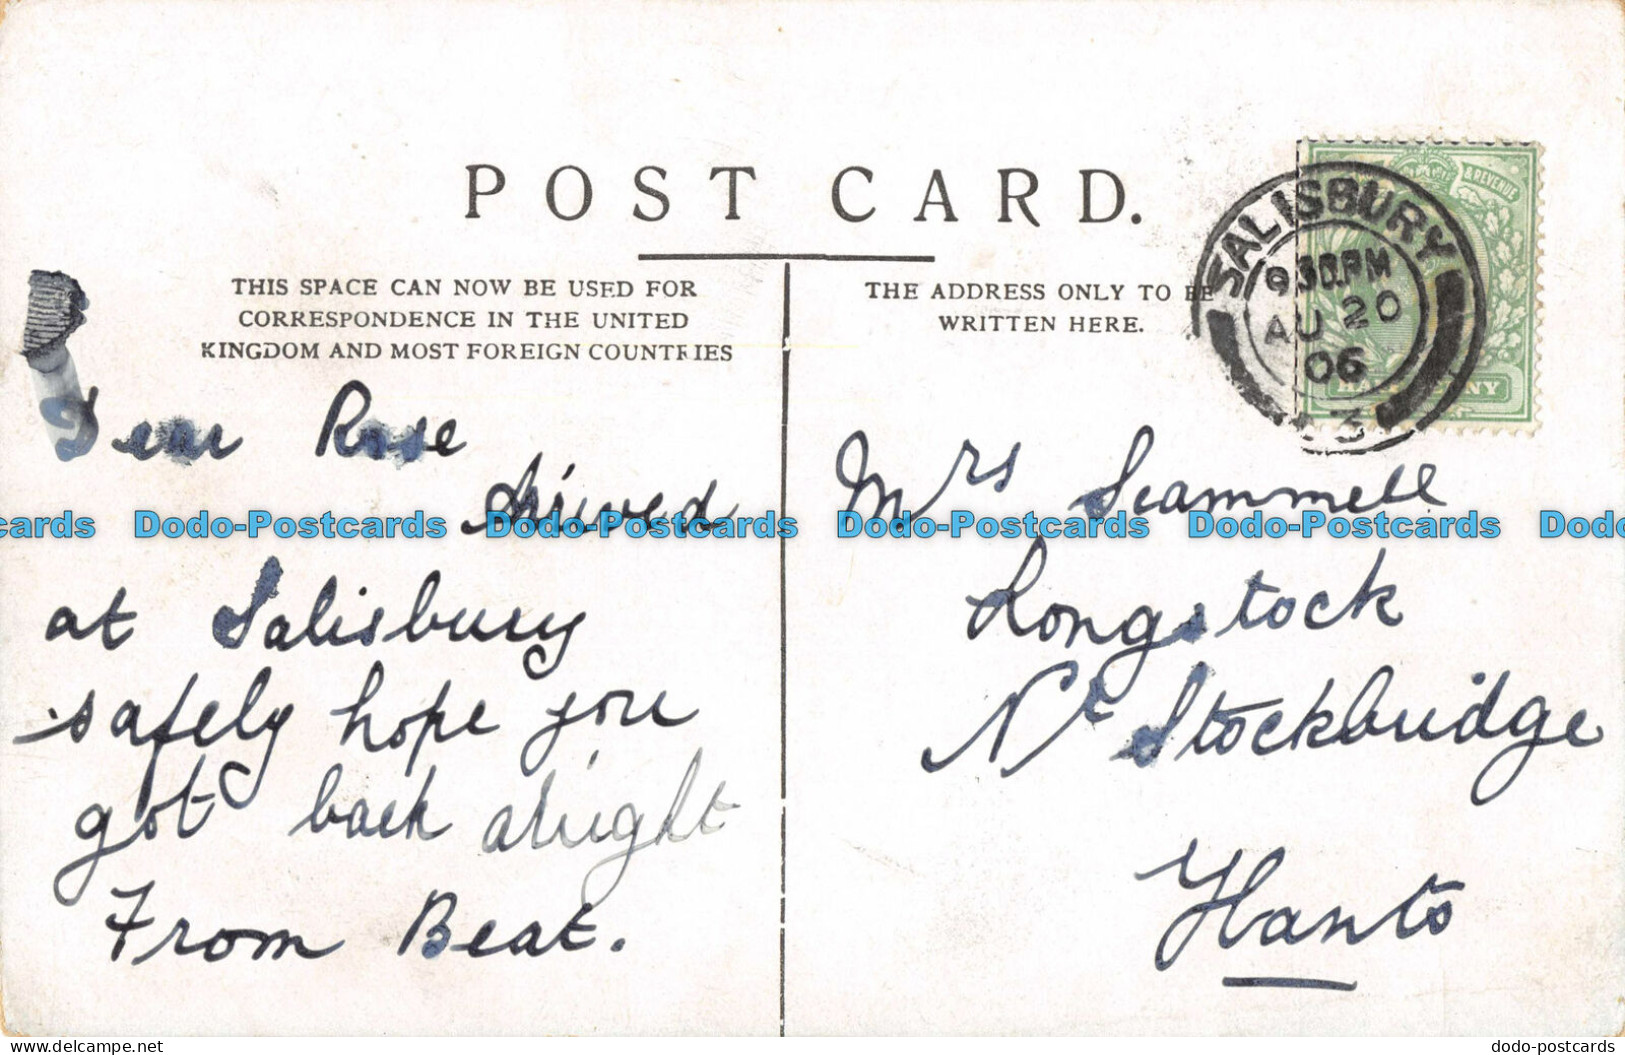 POST CARD.
THIS SPACE CAN NOW BE USED FOR
CORRESPONDENCE IN THE UNITED
KINGDOM AND MOST FOREIGN COUNTRIES
THE ADDRESS ONLY TO BE
WRITTEN HERE.
& REVENUE
SALISBURY
9.30.PM
AU 20
06
3
HALFPENNY
Dear Rose
Arrived
at Salisbury
safely hope you
got back alright
From Beat.
Mrs Scammell
Longstock
Nr Stockbridge
Hants
cards Dodo-Postcards Dodo-Postcards Dodo-Postcards Dodo-Postcards Dodo
delcampe.net
dodo-postcards